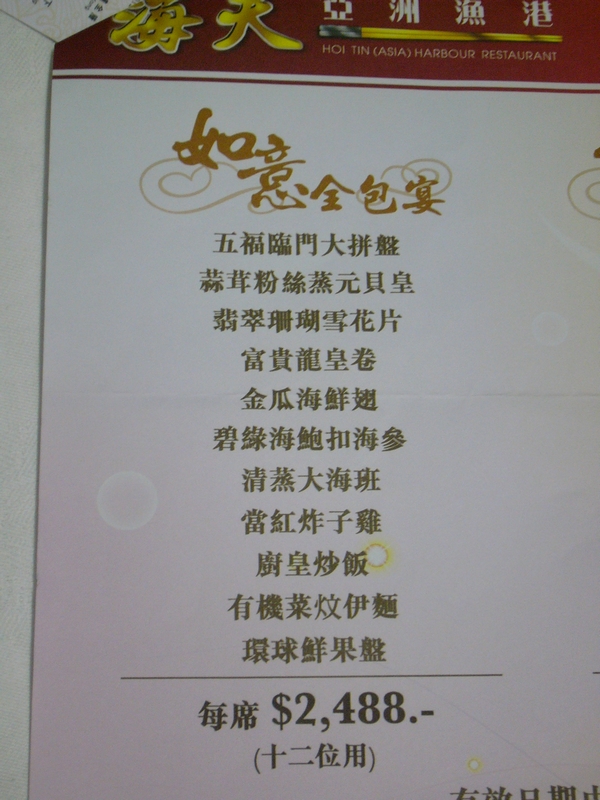 海天 亞洲漁港
HOI TIN (ASIA) HARBOUR RESTAURANT
如意全包宴
五福臨門大拼盤
蒜茸粉絲蒸元貝皇
翡翠珊瑚雪花片
富貴龍皇卷
金瓜海鮮翅
碧綠海鮑扣海參
清蒸大海班
當紅炸子雞
廚皇炒飯
有機菜炆伊麵
環球鮮果盤
每席 $2,488.-
(十二位用)
有效日期由